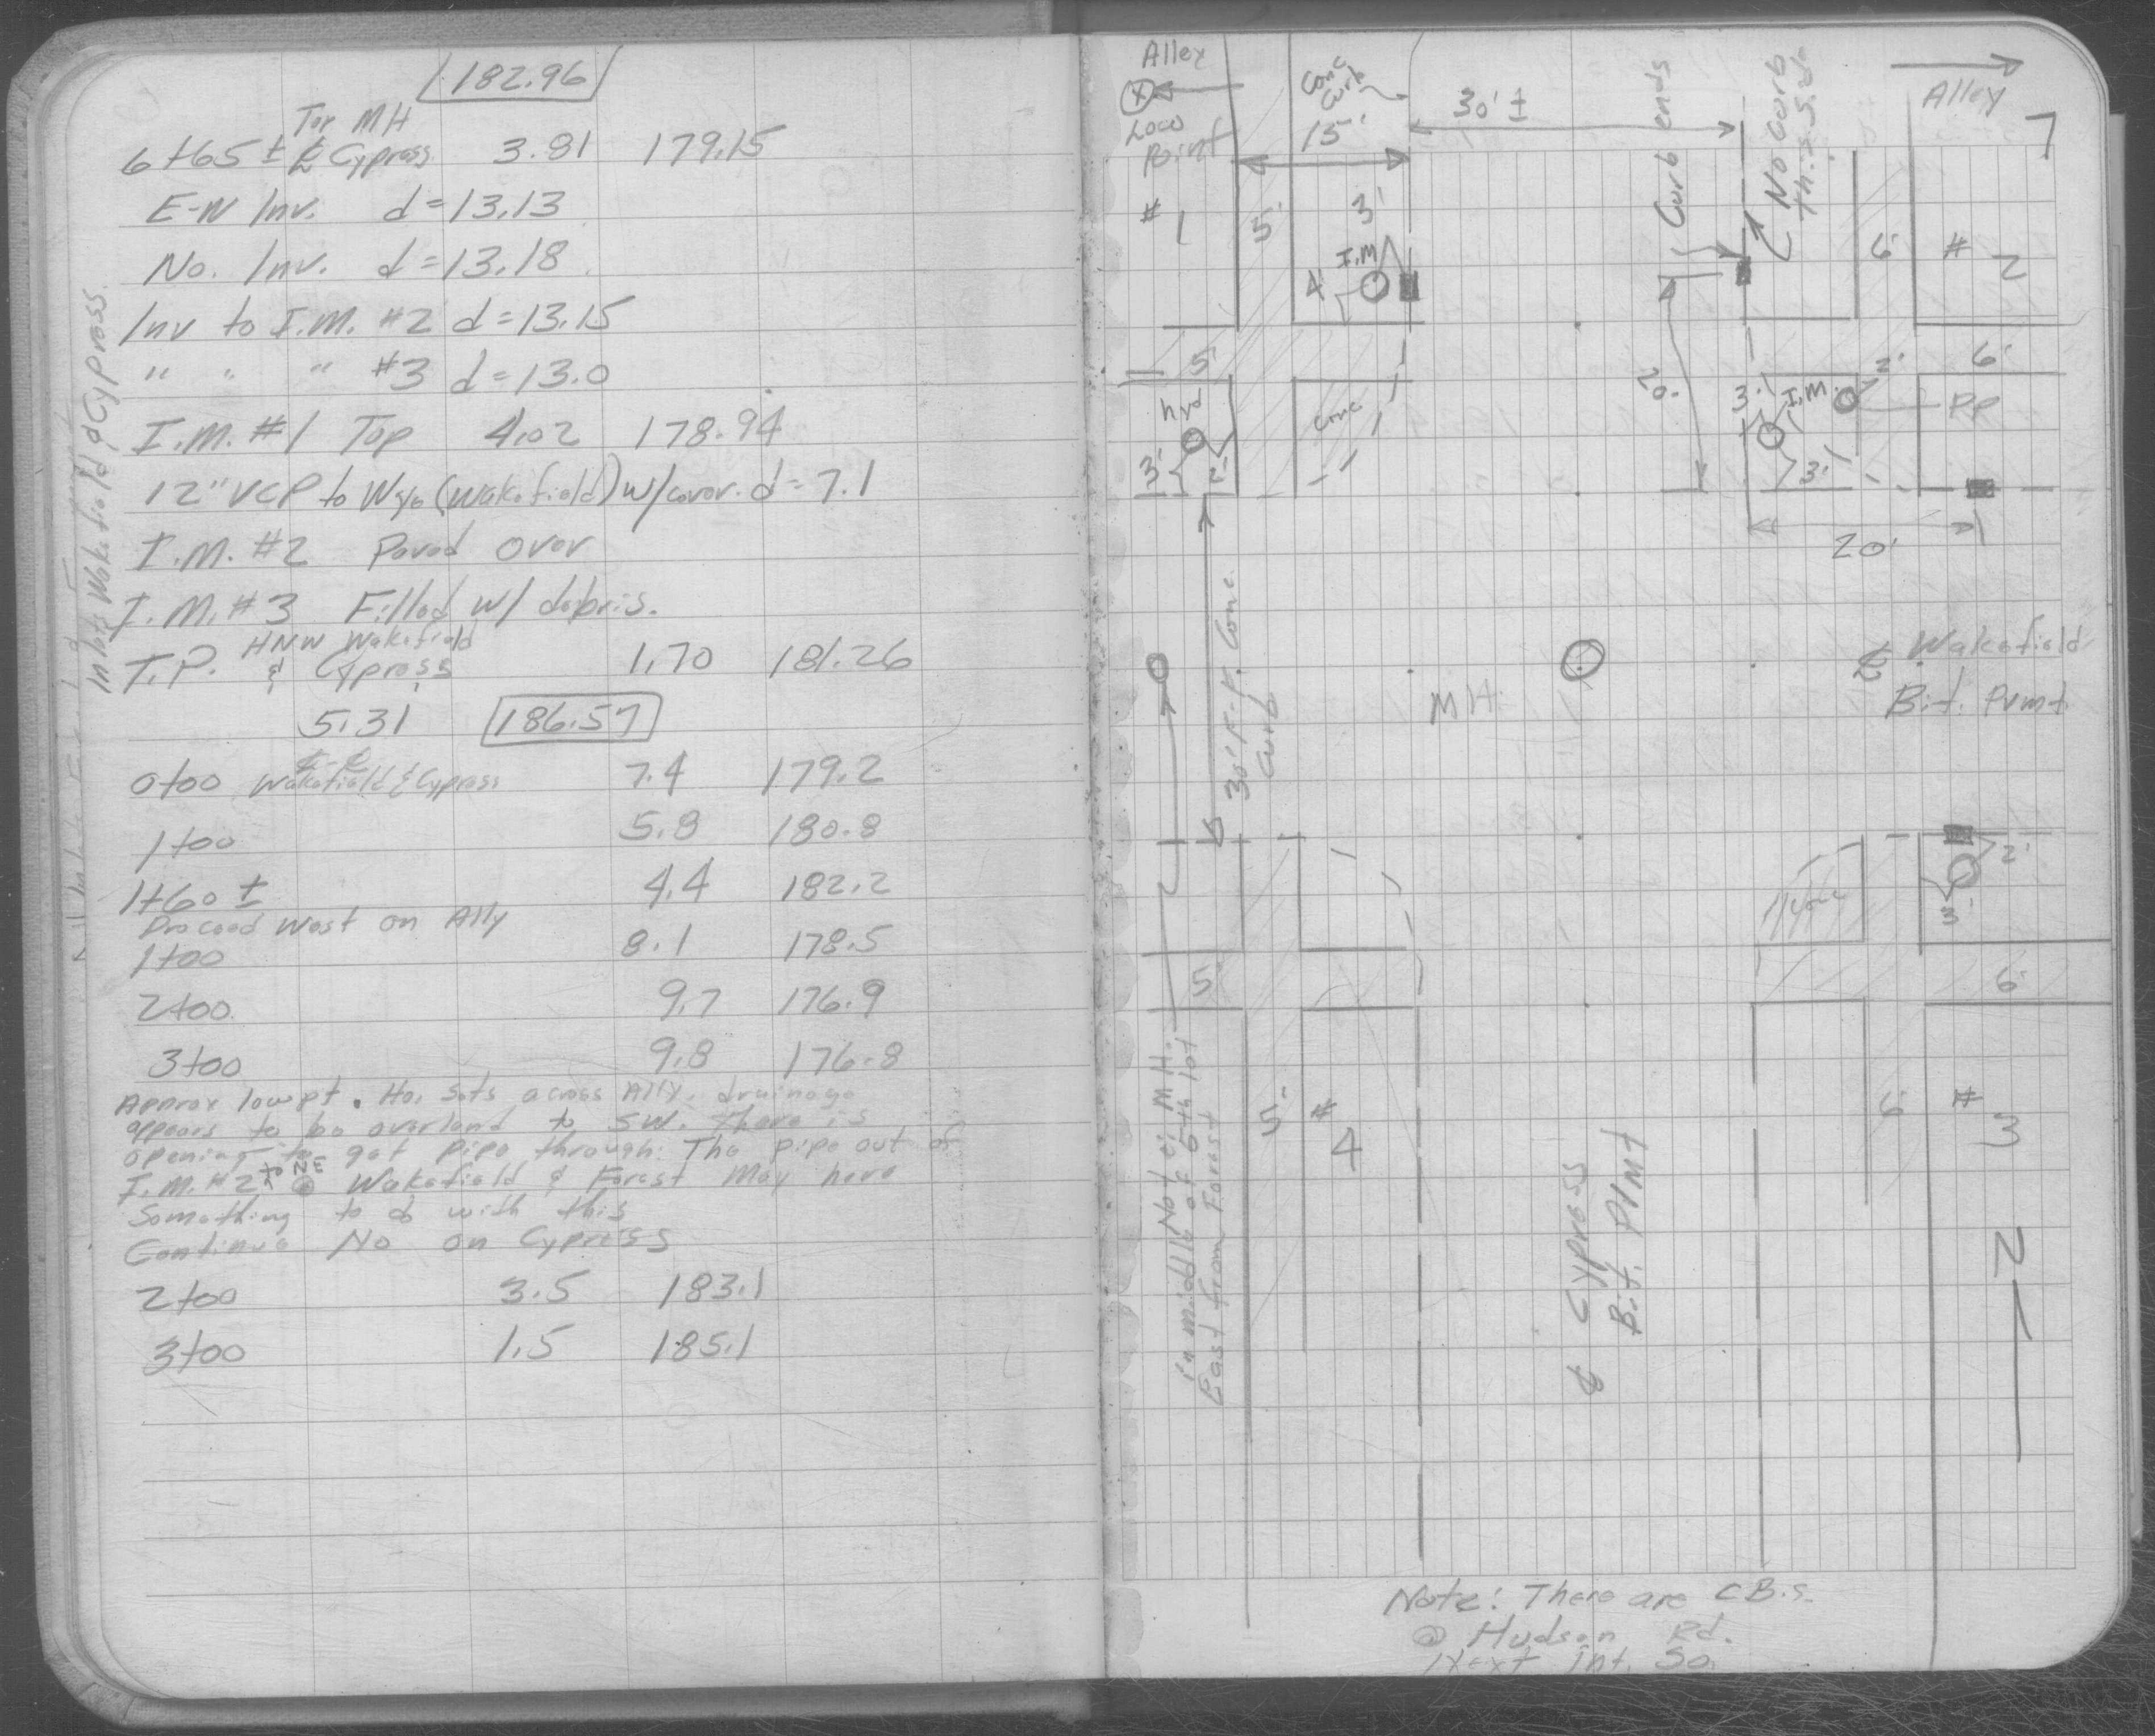 182.96
Top MH
6+65± ℄ Cypress 3.81 179.15
E-W Inv. d=13.13
No. Inv. d=13.18
Inv to I.M. #2 d=13.15
" " " #3 d=13.0
I.M. #1 Top 4.02 178.94
12" VCP to Wye (Wakefield) w/cover. d=7.1
I.M. #2 Paved over
I.M. #3 Filled w/ debris.
T.P. HNW Wakefield
& Cypress 1.70 181.26
5.31 186.57
0+00 Wakefield & Cypress 7.4 179.2
1+00 5.8 180.8
1+60± 4.4 182.2
Proceed West on Ally
1+00 8.1 178.5
2+00 9.7 176.9
3+00 9.8 176.8
Approx low pt. Ho. Sets across Ally. drainage
appears to be overland to SW. There is
opening to get pipe through. The pipe out of
I.M. #2 to NE @ Wakefield & Forest May have
Something to do with this
Continue No on Cypress
2+00 3.5 183.1
3+00 1.5 185.1
Inlets Wakefield & Cypress.
7
Alley
Low
Point
Conc
Curb
15'
30'±
Curb ends
No curb
this side
Alley
# 1
5'
3'
I.M
4'
6'
# 2
5'
6'
hyd
3'
2'
conc
20'
3'
I.M.
2'
PP
3'
20'
30' F.F. Conc.
Curb
MH
℄ Wakefield
Bit. Pvmt
2'
3'
5'
6'
MH.
in middle of 5th lot
East from Forest
5'
# 4
℄ Cypress
Bit. Pvmt
6'
# 3
N
Note: There are CB.s.
@ Hudson Rd.
Next int. So.